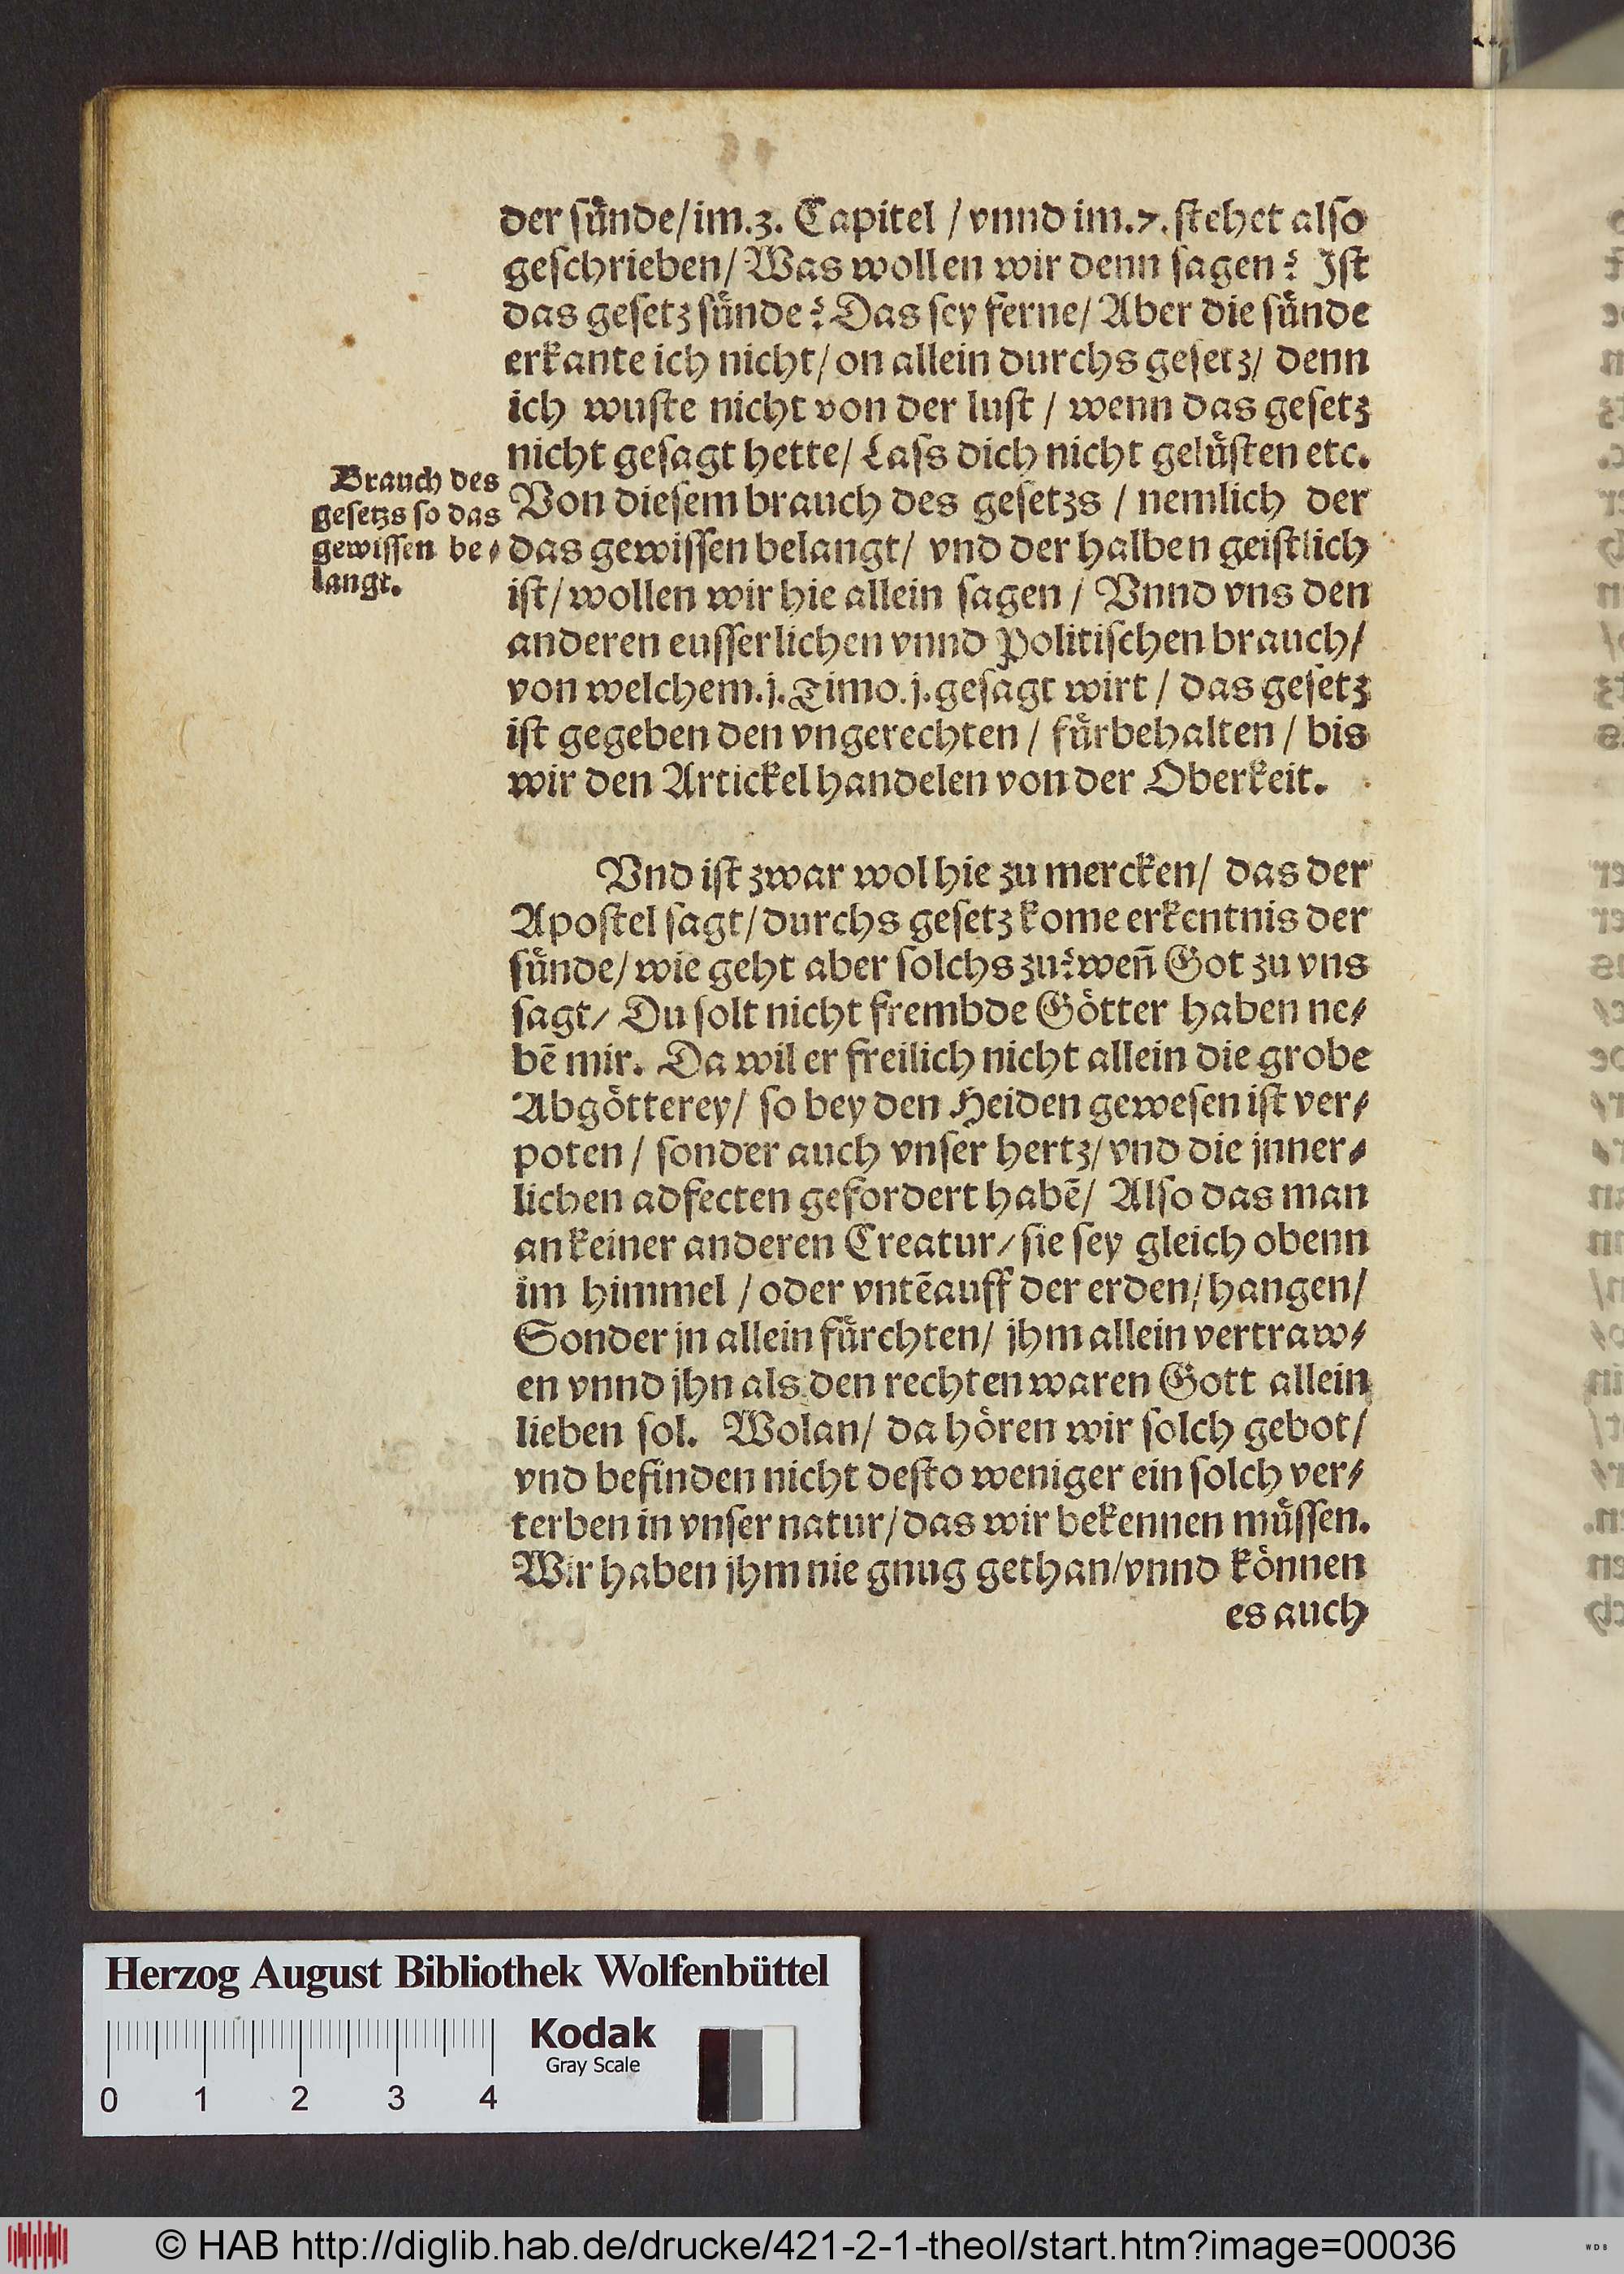 der sünde/im.3. Capitel / vnnd im.7. stehet also
geschrieben/ Was wollen wir denn sagen? Ist
das gesetz sünde? Das sey ferne/ Aber die sünde
erkante ich nicht/ on allein durchs gesetz/ denn
ich wuste nicht von der lust / wenn das gesetz
nicht gesagt hette/ Lass dich nicht gelüsten etc.
Von diesem brauch des gesetzs / nemlich der
das gewissen belangt/ vnd der halben geistlich
ist/ wollen wir hie allein sagen / Vnnd vns den
anderen eusserlichen vnnd Politischen brauch/
von welchem.j. Timo.j. gesagt wirt / das gesetz
ist gegeben den vngerechten / fürbehalten / bis
wir den Artickel handelen von der Oberkeit.
Brauch des
gesetzs so das
gewissen be⸗
langt.
Vnd ist zwar wol hie zu mercken/ das der
Apostel sagt/ durchs gesetz kome erkentnis der
sünde/ wie geht aber solchs zu? weñ Got zu vns
sagt/ Du solt nicht frembde Götter haben ne⸗
bẽ mir. Da wil er freilich nicht allein die grobe
Abgötterey/ so bey den Heiden gewesen ist ver⸗
poten / sonder auch vnser hertz/ vnd die jnner⸗
lichen adfecten gefordert habẽ/ Also das man
an keiner anderen Creatur/ sie sey gleich obenn
im himmel / oder vntẽ auff der erden/ hangen/
Sonder jn allein fürchten/ jhm allein vertraw⸗
en vnnd jhn als den rechten waren Gott allein
lieben sol. Wolan/ da hören wir solch gebot/
vnd befinden nicht desto weniger ein solch ver⸗
terben in vnser natur/ das wir bekennen müssen.
Wir haben jhm nie gnug gethan/ vnnd können
es auch
Herzog August Bibliothek Wolfenbüttel
Kodak
Gray Scale
0 1 2 3 4
© HAB http://diglib.hab.de/drucke/421-2-1-theol/start.htm?image=00036
WDB